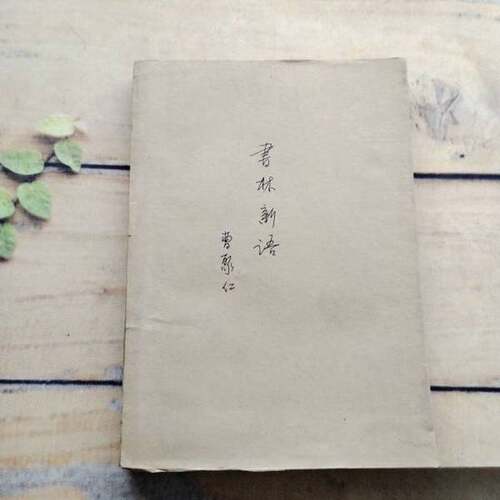 書林新语
曹聚仁